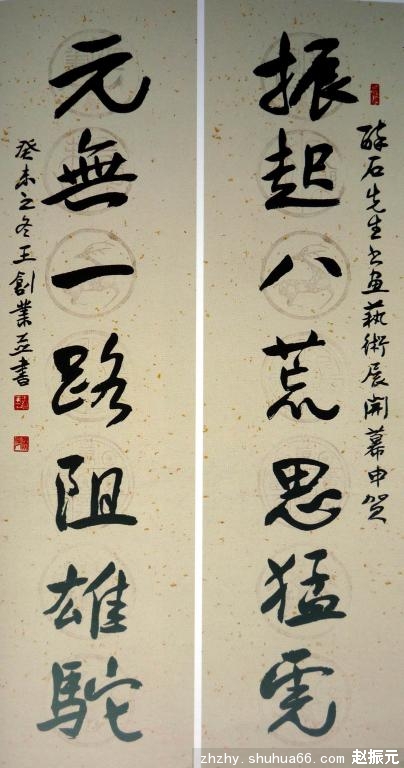 醉石先生书画藝術展開幕申贺
振起八荒思猛虎
元無一路阻雄駝
癸未之冬王創業並書
zhzhy.shuhua66.com 赵振元